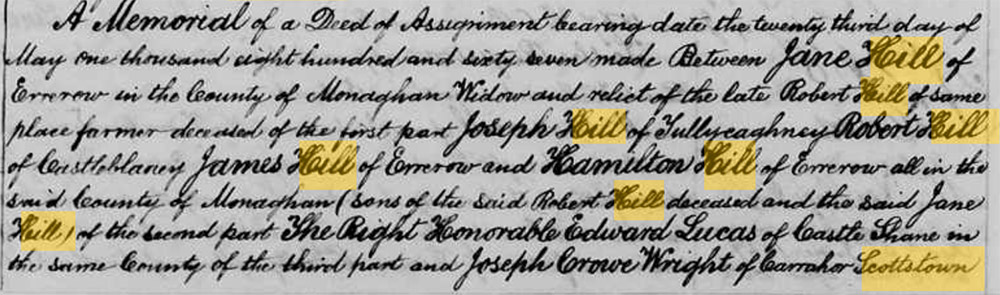 A Memorial of a Deed of Assignment bearing date the twenty third day of
May one thousand eight hundred and sixty seven made Between Jane Hill of
Errerow in the County of Monaghan Widow and relict of the late Robert Hill of same
place farmer deceased of the first part Joseph Hill of Tullycaghney Robert Hill
of Castleblaney James Hill of Errerow and Hamilton Hill of Errerow all in the
said County of Monaghan (sons of the said Robert Hill deceased and the said Jane
Hill) of the second part The Right Honorable Edward Lucas of Castle Shane in
the same County of the third part and Joseph Crowe Wright of Carrahor Scottstown